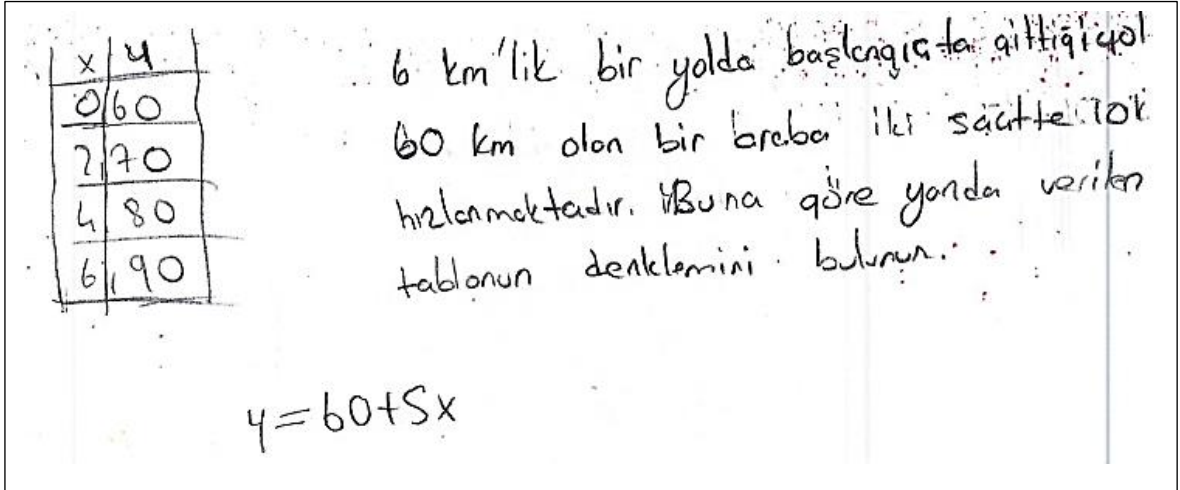 x | y
0 | 60
2 | 70
4 | 80
6 | 90
6 km'lik bir yolda başlangıçta gittiği yol
60 km olan bir araba iki saatte 10k
hızlanmaktadır. Buna göre yanda verilen
tablonun denklemini bulunun.
y=60+5x